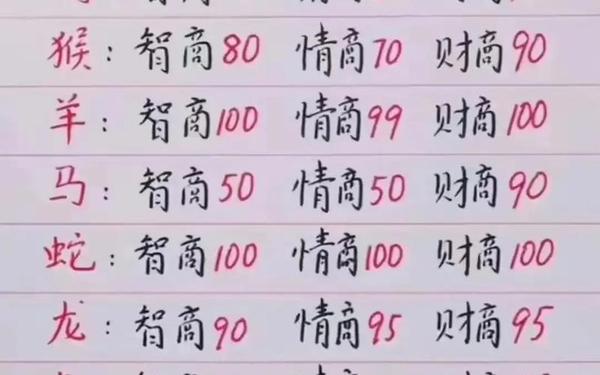 猴：智商80 情商70 财商90
羊：智商100 情商99 财商100
马：智商50 情商50 财商90
蛇：智商100 情商100 财商100
龙：智商90 情商95 财商95